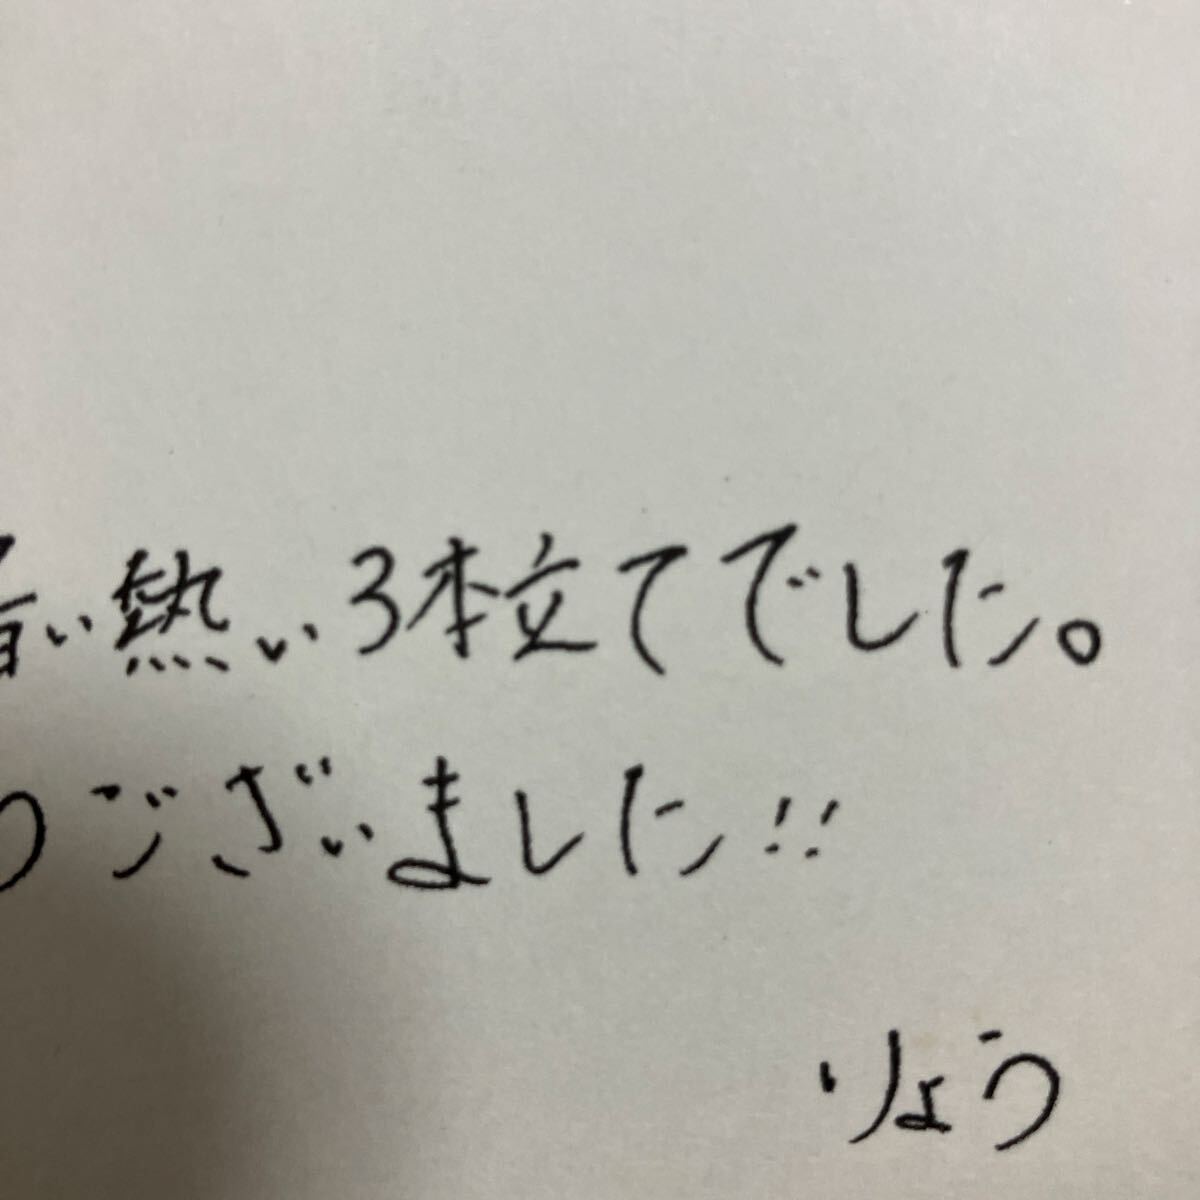 暑い熱い3本立てでした。
うございました!!
りょう